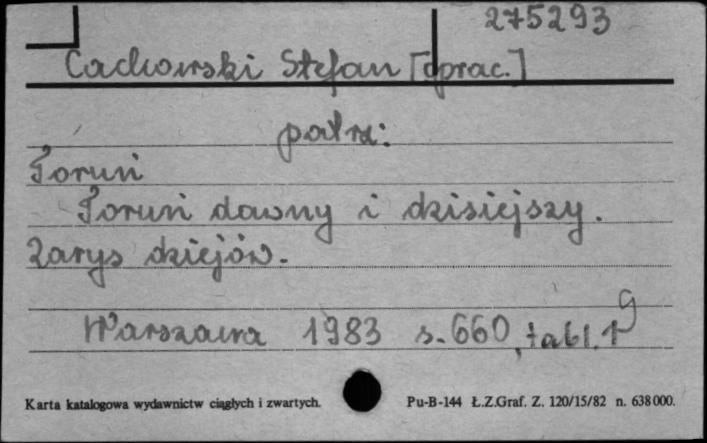 275293
Cackowski Stefan [oprac.]
patrz:
Toruń
Toruń dawny i dzisiejszy.
Zarys dziejów.
Warszawa 1983 s. 660, tabl. 1 9
Karta katalogowa wydawnictw ciągłych i zwartych.
Pu-B-144 Ł.Z.Graf. Z. 120/15/82 n. 638000.